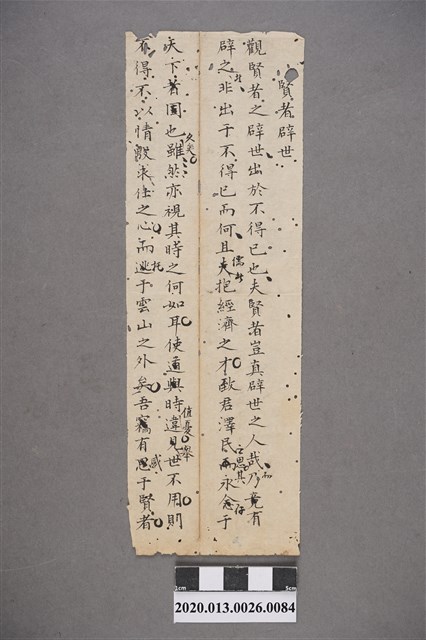 賢者辟世
觀賢者之辟世出於不得已也夫賢者豈真辟世之人哉乃竟有
辟之非出于不得已而何且夫抱經濟之才致君澤民而永念于
天下者固也雖然亦視其時之何如耳使道與時違見世不用則
不得不以情殷求仕之心而逃于雲山之外矣吾竊有思于賢者
儒者
久矣
托
值憂
感
1cm
5cm
2020.013.0026.0084